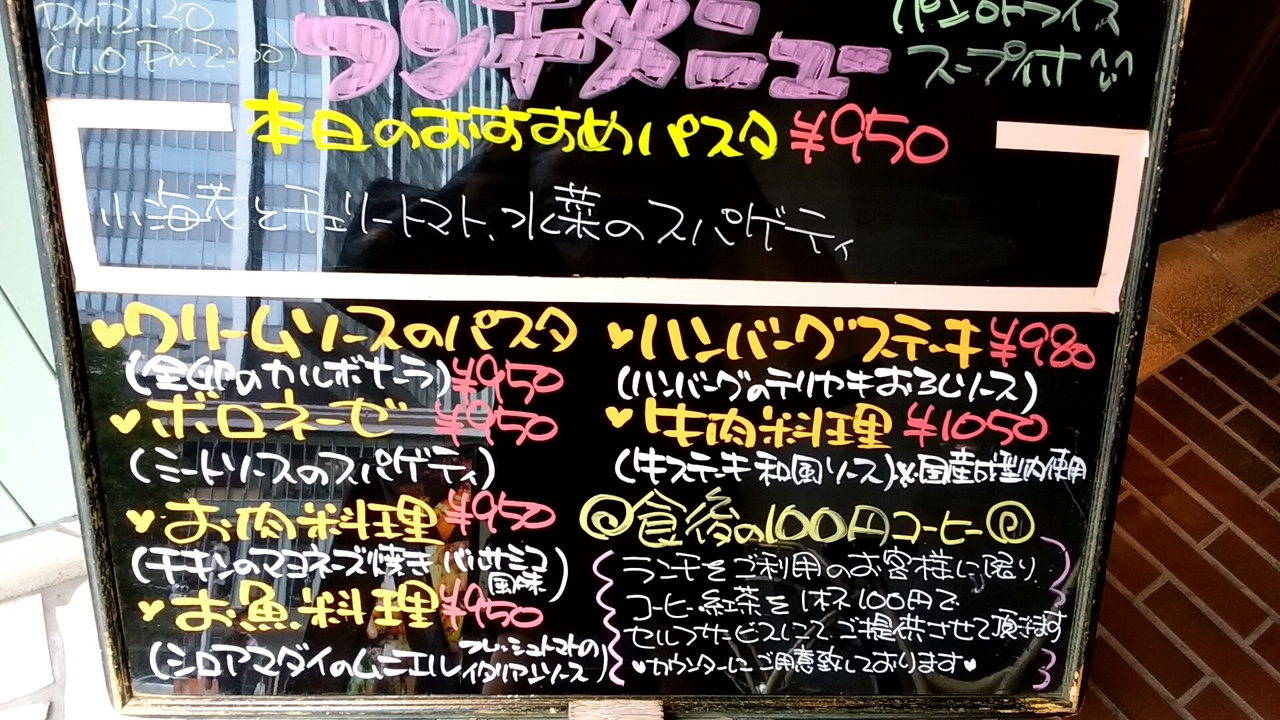 PM2:30
(L.O PM2:00)
ランチメニュー
パンorライス
スープ付
本日のおすすめパスタ ¥950
小海老とチェリートマト、水菜のスパゲティ
クリームソースのパスタ
(全卵のカルボナーラ) ¥950
ボロネーゼ ¥950
(ミートソースのスパゲティ)
お肉料理 ¥950
(チキンのマヨネーズ焼き バルサミコ風味)
お魚料理 ¥950
(シロアマダイのムニエル フレッシュトマトのイタリアンソース)
ハンバーグステーキ ¥980
(ハンバーグのテリヤキおろしソース)
牛肉料理 ¥1050
(牛ステーキ 和風ソース)※国産成型肉使用
食後の100円コーヒー
ランチをご利用のお客様に限り
コーヒー紅茶を1杯100円で
セルフサービスにて、ご提供させて頂きます
カウンターにご用意致しております